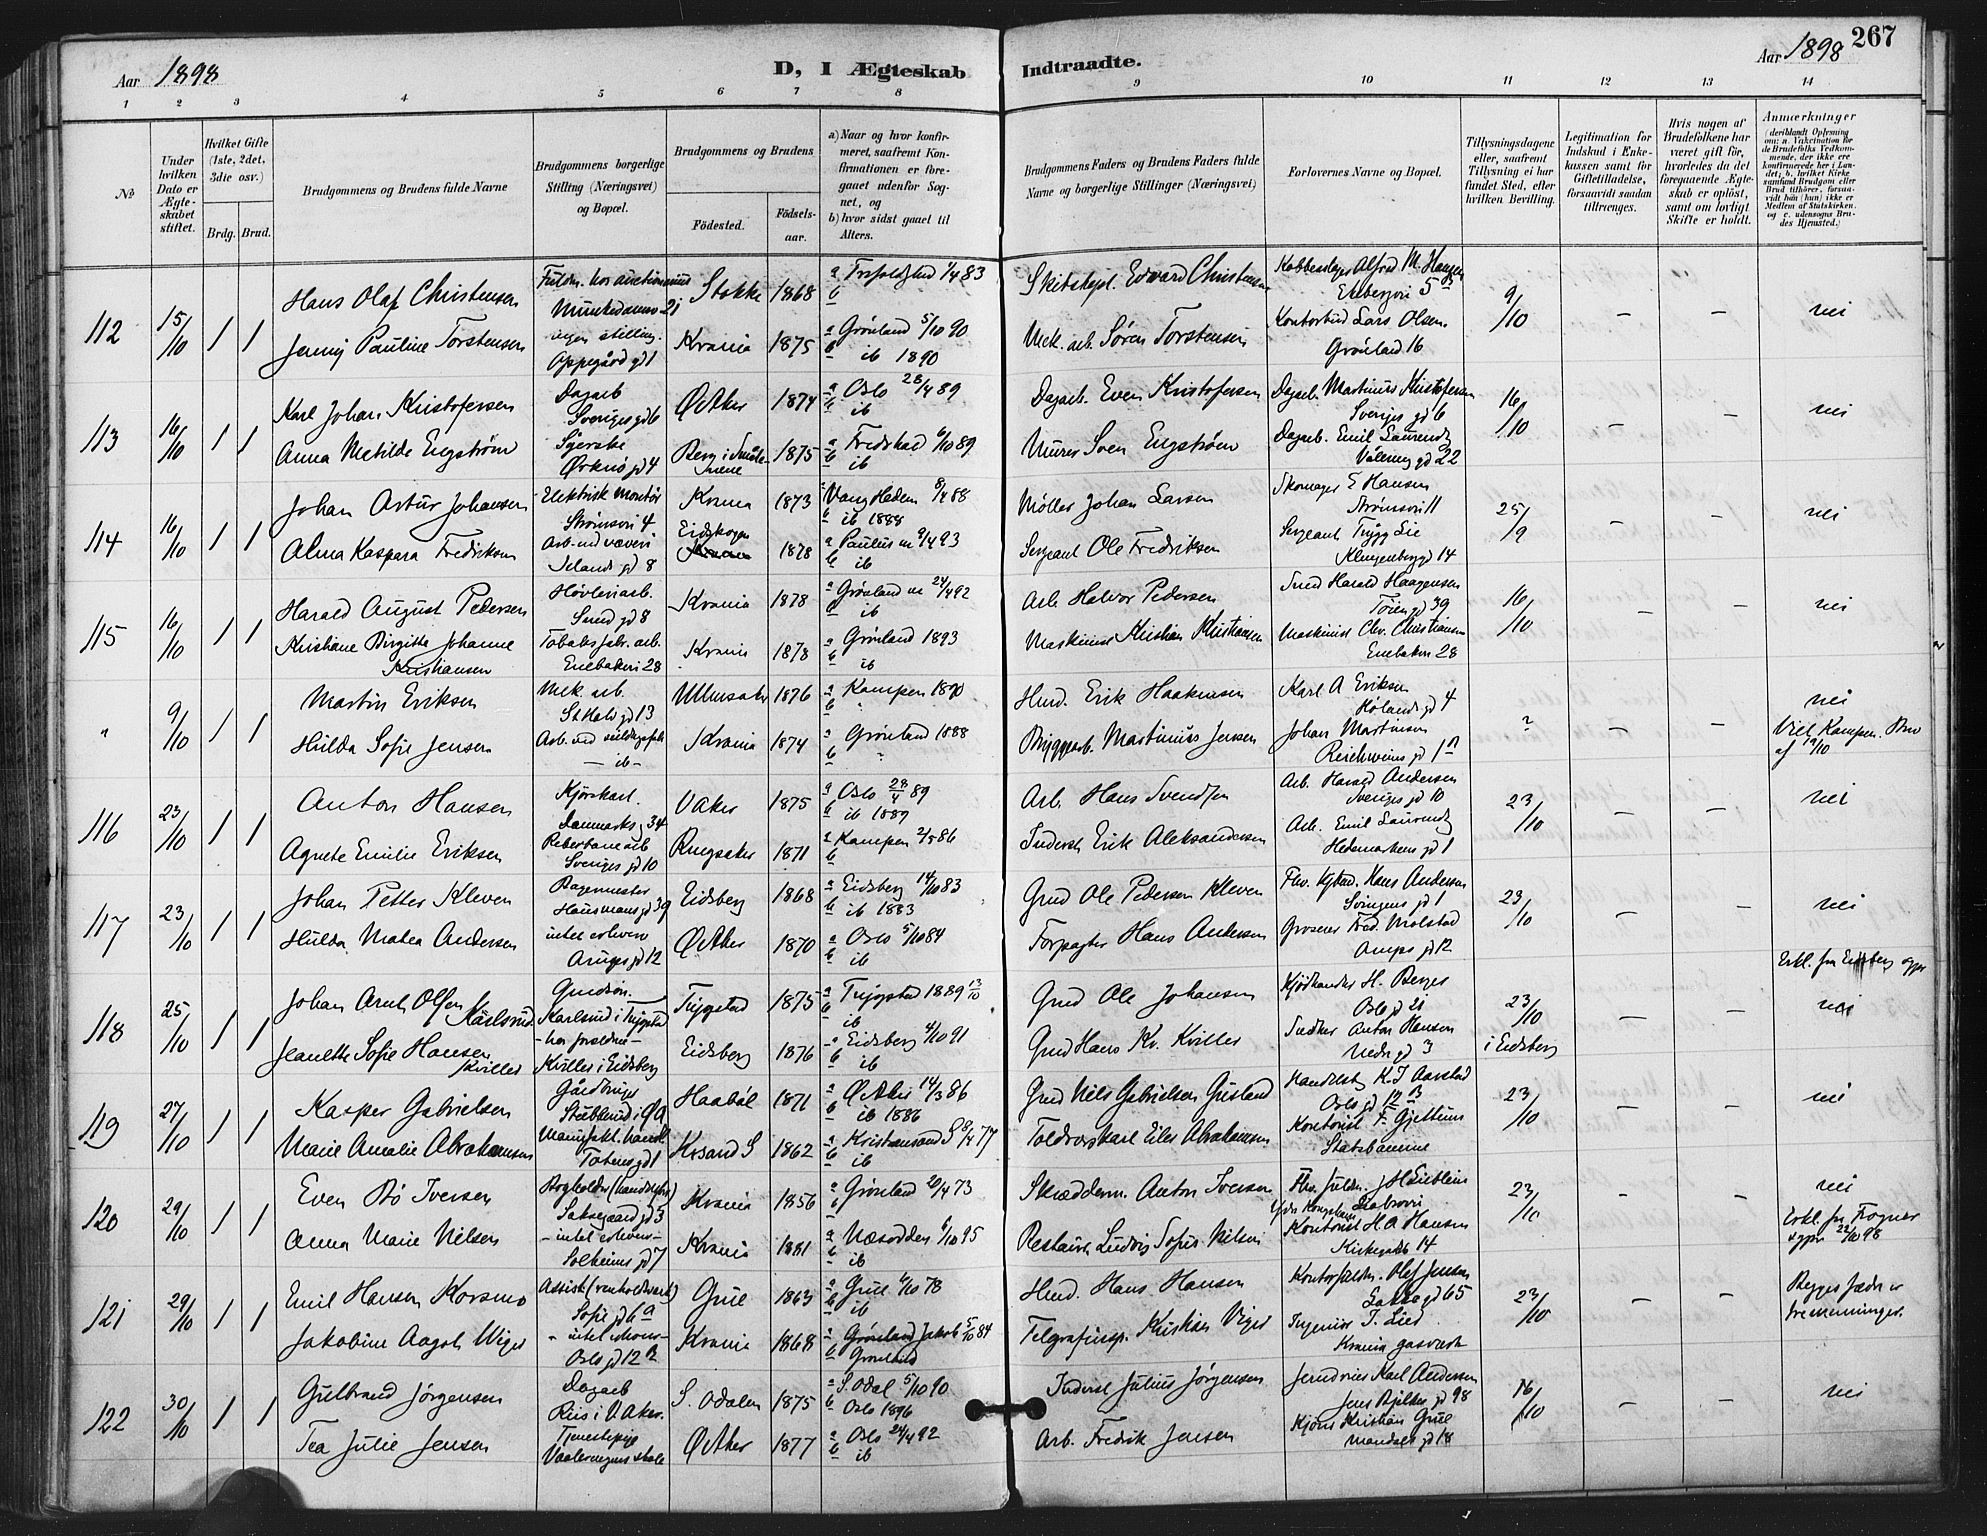 267
Aar 1898
D, I Ægteskab Indtraadte.
Aar 1898
1 2 3 4 5 6 7 8 9 10 11 12 13 14
№
Under hvilken Dato er Ægteskabet stiftet.
Hvilket Gifte (1ste, 2det, 3die osv.)
Brdg. Brud.
Brudgommens og Brudens fulde Navne
Brudgommens borgerlige Stilling (Næringsvei) og Bopæl.
Brudgommens og Brudens
Födested.
Födselsaar.
a) Naar og hvor konfirmeret, saafremt Konfirmationen er foregaaet udenfor Sognet, og
b) hvor sidst gaaet til Alters.
Brudgommens Faders og Brudens Faders fulde Navne og borgerlige Stillinger (Næringsvei)
Forlovernes Navne og Bopæl.
Tillysningsdagene eller, saafremt Tillysning ei har fundet Sted, efter hvilken Bevilling.
Legitimation for Indskud i Enkekassen samt for Giftetilladelse, forsaavidt saadan tiltrænges.
Hvis nogen af Brudefolkene har været gift för, hvorledes da det foregaaende Ægteskab er oplöst, samt om lovligt Skifte er holdt.
Anmærkninger
(deriblandt Oplysning om: a. Vakcination for de Brudefolks Vedkommende, der ikke ere konfirmerede her i Landet; b. hvilket Kirkesamfund Brudgom eller Brud tilhörer, forsaavidt han (hun) ikke er Medlem af Statskirken. og c. udensogns Brudes Hjemsted.)
112 15/10 1 1
Hans Olaf Christensen
Munkedamsv 21
Stokke 1868
a Trefoldighed 1/4 83
b
Edvard Christensen
Alfred M. Hansen
9/10 – – nei
Jenny Pauline Torstensen
ingen stilling.
Oppegård gd 1
Krania 1875
a Grönland 5/10 90
b ib 1890
Mek. arb. Sören Torstensen
Kontorbud Lars Olsen.
Grönland 16
113 16/10 1 1
Karl Johan Kristofersen
Dagarb
Sveriges gd 6
Ø Aker 1874
a Oslo 28/4 89
b ib
Dagarb. Even Kristofersen
Dagarb. Martinius Kristofersen
Sveriges gd 6
16/10 – – nei
Anna Matilde Engström
Syerske
Ørknö gd 4
Berg i Smålenene 1875
a Fredshad 6/10 89
b ib
Murer Sven Engström
Dagarb. Emil Laurendz
Våleng gd 22
114 16/10 1 1
Johan Artur Johansen
Elektrisk montör
Strömsvei 4
Krania 1873
a Vang Hedem 8/4 88
b ib 1888
Möller Johan Larsen
Skomager E Hansen
Strömsvei 11
25/9 – – nei
Alma Kaspara Fredriksen
Arb. ved væveri
Islands gd 8
Eidskogen
Krania 1878
a Paulus m 9/4 93
b ib
Sergeant Ole Fredriksen
Sergeant Trygg Lie
Klingenberggd 14
115 16/10 1 1
Harald August Pedersen
Hövleriarb.
Smed gd 8
Krania 1878
a Grönland m 24/4 92
b ib
Arb Halvor Pedersen
Smed Harald Haagensen
Töien gd 39
16/10 – – nei
Kristiane Birgitte Johanne Kristiansen
Tobaksfabr. arb.
Enebakvei 28
Krania 1878
a Grönland 1893
b ib
Maskinist Kristian Kristiansen
Maskinist Chr. Christiansen
Enebakvei 28
" 9/10 1 1
Martin Eriksen
Mek. arb.
St. Halv. gd 13
Ullensaker 1876
a Kampen 1890
b "
Husm. Erik Haakensen
Karl A Eriksen
Hölands gd 4
? – – nei
Viet Kampen.
af 19/10
Hulda Sofie Jensen
– ib –
Krania 1874
a Grönland 1888
b "
Bryggearb. Martinius Jensen
Johan Martinsen
Reichweins gd 1
116 23/10 1 1
Anton Hansen
Kjörekarl.
Danmarks g 34
V Aker 1875
a Oslo 28/4 89
b ib 1889
Arb. Hans Svendsen
Arb. Harald Andersen
Sveriges gd 10
23/10 – – nei
Agnete Emilie Eriksen
Reberbane arb
Sveriges gd 10
Ringsaker 1871
a Kampen 2/5 86
b
Inderst Erik Aleksandersen
Arb. Emil Laurendz
Hedemarkens gd 1
117 23/10 1 1
Johan Petter Kleven
Bagermester
Hausmans gd 39
Eidsberg 1868
a Eidsberg 14/10 83
b ib 1883
Grd Ole Pedersen Kleven
Hans Andersen
Svingens gd 1
23/10 – – nei
Hulda Matea Andersen
intet erhverv
Arups gd 12
Ø Aker 1870
a Oslo 5/10 84
b ib
Forpagter Hans Andersen
Grosserer Fred. Molstad
Arups gd 12
118 25/10 1 1
Johan Arnt Olsen Karlsrud
Grdsön.
Karlsrud i Trögstad
Trögstad 1875
a Trögstad 1889 13/10
b ib
Grd Ole Johansen
Kjödhandler H. Berger
Oslo gd 21
23/10
i Eidsberg – –
Erkl. fra Eidsberg
nei
Jeanette Sofie Hansen Kviller
– hos forældre –
Kviller i Eidsberg
Eidsberg 1876
a Eidsberg 4/10 91
b ib
Grd Hans Kr. Kviller
Snedker Anton Hansen
Nedre gd 3
119 27/10 1 1
Kasper Gabrielsen
Gårdbruger
Stubberud i ØA
Haaböl 1871
a Ø Aker 14/3 86
b ib 1886
Grd Nils Gabrielsen Gusland
Handelsb. K. J. Aarstad
Oslo gd 12 B
23/10 – – nei
Marie Amalie Abrahamsen
Manufakt. handl
Totens gd 1
Krsand S 1862
a Kristiansand S 8/4 77
b ib
Toldroerskarl Eiler Abrahamsen
Kontorist F. Gjettum
Statsbanerne
120 29/10 1 1
Even Bö Iversen
Bogholder
Saksegaard gd 3
Krania 1856
a Grönland 20/4 73
b
Skrædderm. Anton Iversen
23/10 – – nei
Erkl. fra Frogner
22/10 98
Anna Marie Nilsen
– intet erhverv –
Solheims gd 7
Krania 1881
a Næsodden 6/10 95
b ib
Restaur. Ludvig Sofus Nilsen
Kontorist H. A Hansen
Kirkegade 14
121 29/10 1 1
Emil Hansen Korsmo
Sofie gd 6 a
Grue 1863
a Grue 6/10 78
b ib
Husm. Hans Hansen
Kontorfuldm. Olaf Jensen
gd 65
23/10 – –
Begges fædre er
tremenninger.
Jakobine Aagot Wiger
– intet erhverv –
Oslo gd 12 B
Krania 1868
a Grönland Jakob 5/10 84
b Grönland
Telegrafinsp. Kristian Viger
Ingeniör J. Lied
Krania gasværk
122 30/10 1 1
Gulbrand Jörgensen
Dagarb
Riis i V. Aker.
S. Odalen 1875
a S. Odal 5/10 90
b Oslo 1896
Inderst Julius Jörgensen
Karl Andersen
Jens Bjelkes gd 98
16/10 – – nei
Tea Julie Jensen
Tjenestepige
Vaalerengens skole
Ø Aker 1877
a Oslo 24/4 92
b ib
Arb. Fredrik Jensen
Kristian Grue
Mandals gd 18